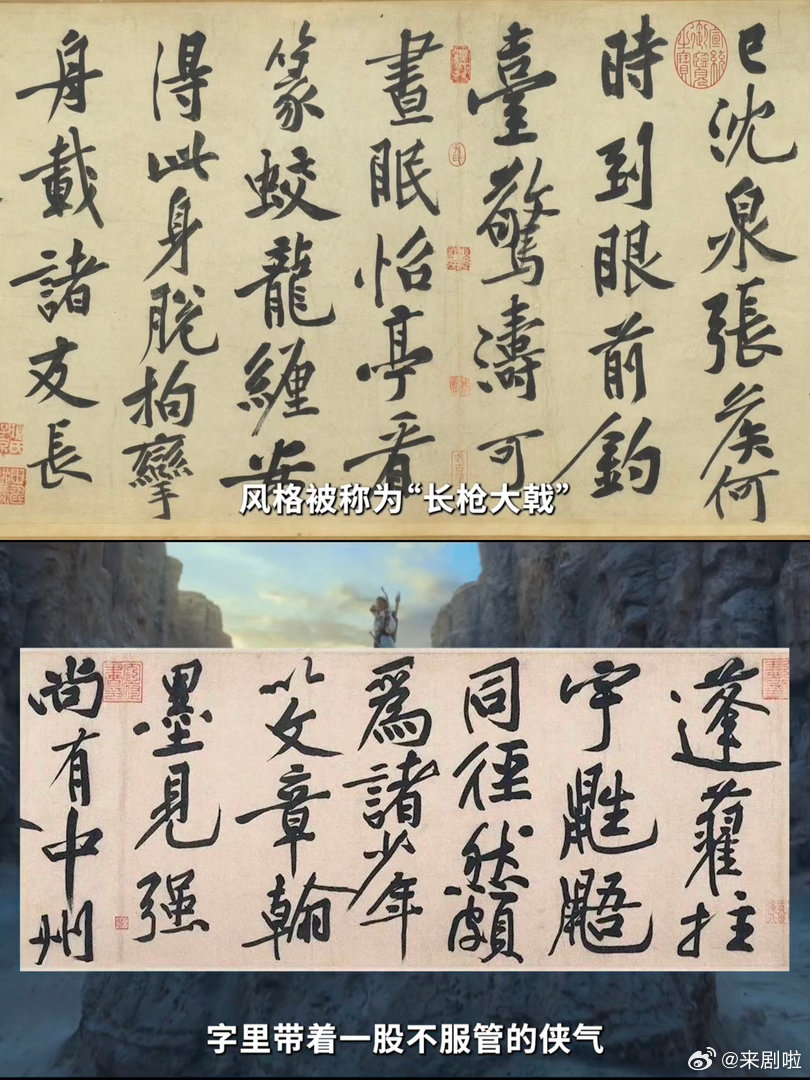 宣統御覽之寶
已沈泉張矦何
時到眼前釣
臺驚濤可
晝眠怡亭看
篆蛟龍纏安
得此身脫拘攣
舟載諸友長
风格被称为“长枪大戟”
蓬藋拄
宇鼪鼯
同徑然頗
爲諸少年
以文章翰
墨見强
尚有中州
字里带着一股不服管的侠气
@来剧啦